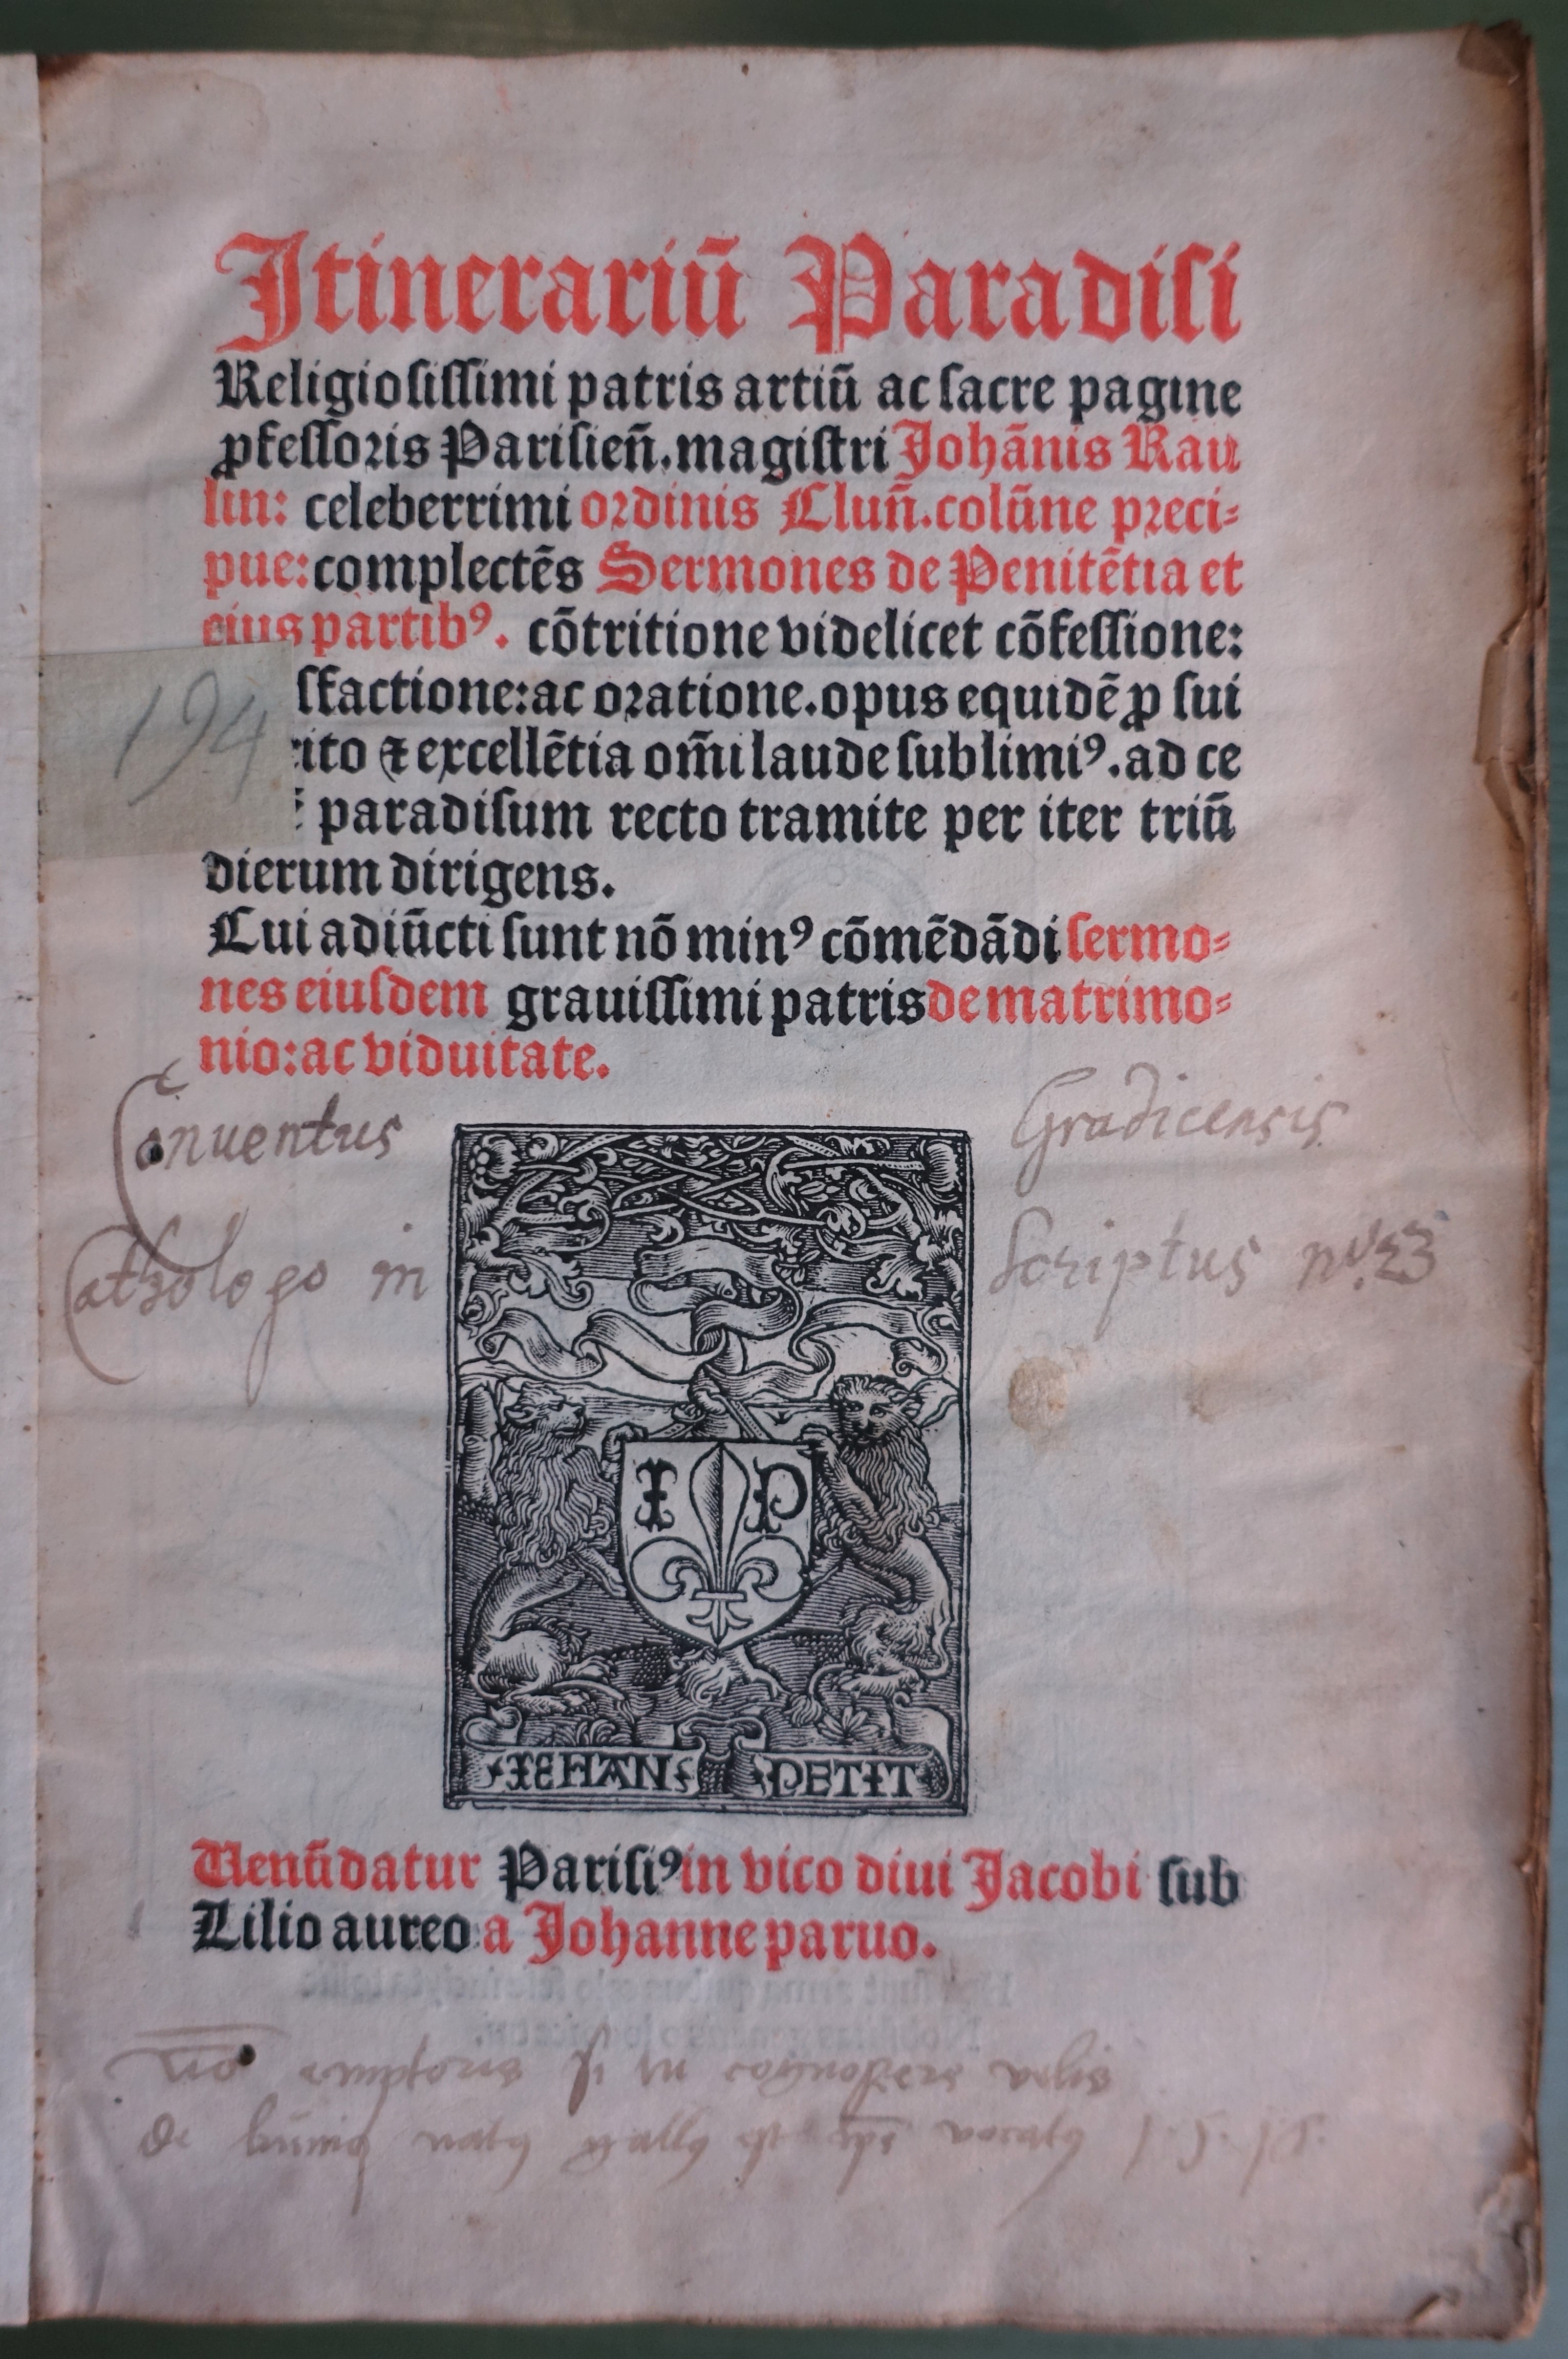 Itinerariū Paradisi
Religiosissimi patris artiū ac sacre pagine
ꝓfessoris Parisieñ. magistri Johānis Rau
lin: celeberrimi ordinis Cluñ. colūne preci⸗
pue: complectēs Sermones de Penitētia et
eius partibꝰ. cōtritione videlicet cōfessione:
194
sfactione: ac oratione. opus equidē ꝓ sui
rito & excellētia om̄i laude sublimiꝰ. ad ce
paradisum recto tramite per iter triū
dierum dirigens.
Cui adiūcti sunt nō minꝰ cōmēdādi sermo⸗
nes eiusdem grauissimi patris de matrimo⸗
nio: ac viduitate.
Conuentus Gradicensis
Cathologo in scriptus nº. 23
I P
IEHAN PETIT
Venūdatur Parisiꝰ in vico diui Jacobi sub
Lilio aureo a Johanne paruo.
emptoris si tu cognoscere velis
de natꝰ gallꝰ vocatꝰ 1.5.18.